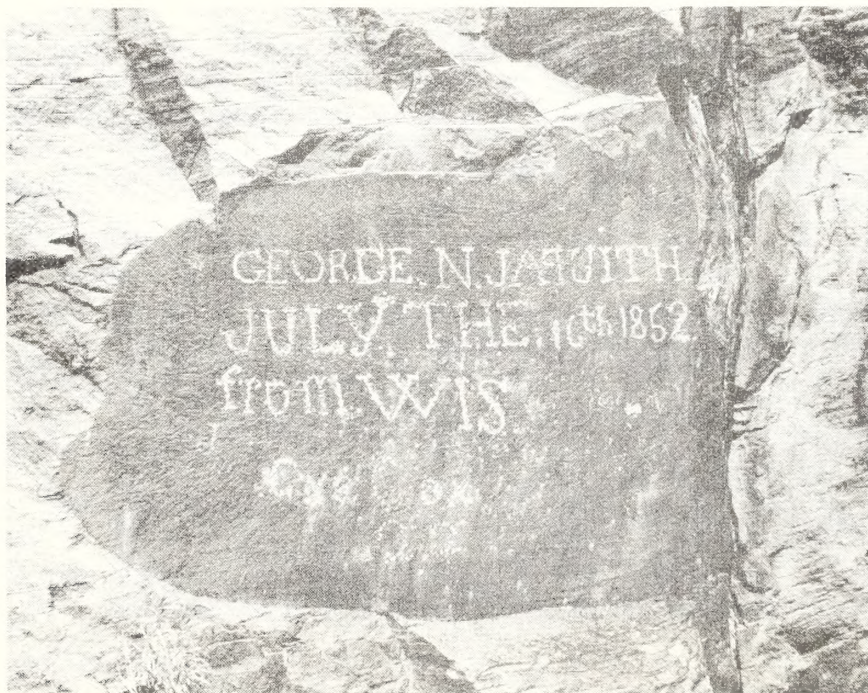 GEORGE. N. JAQUITH.
JULY. THE. 16th 1852
from. WIS.